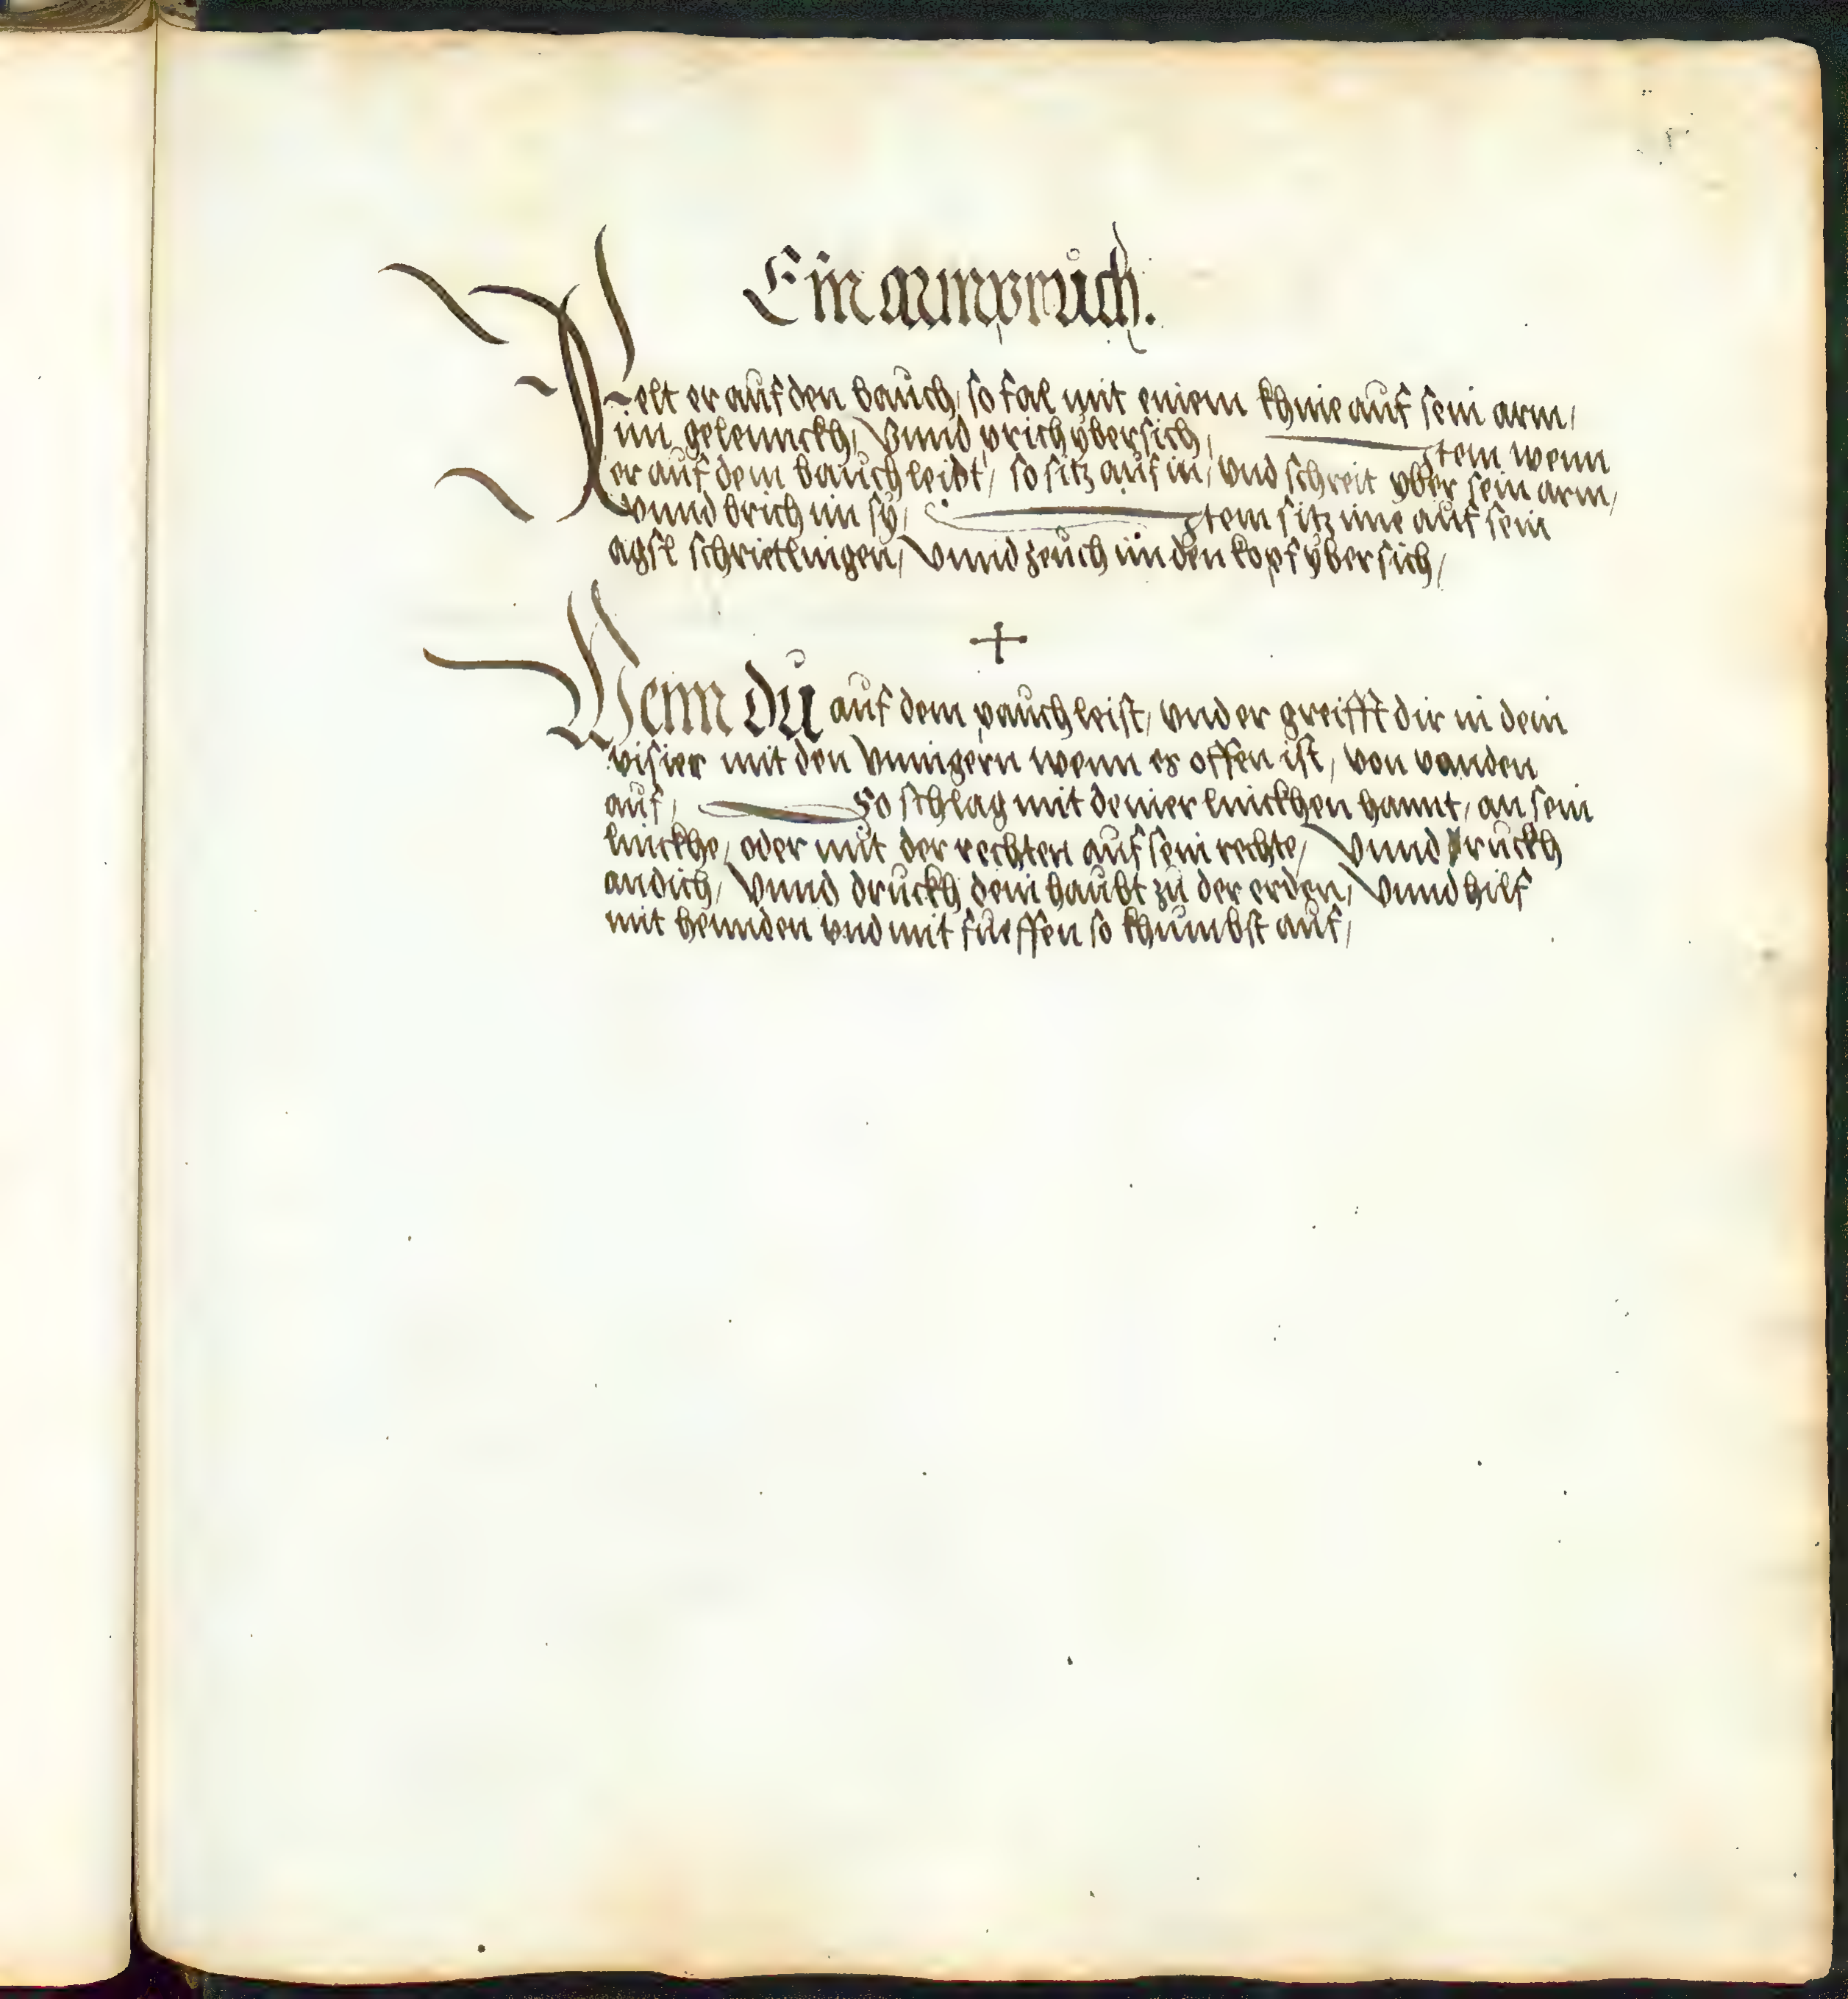 Ein armpruch.
Felt er auf den bauch, so fal mit einem khnie auf sein arm,
im gelennckh, Vnnd prich ybersich, Item wenn
er auf dem bauch leibt, so sitz auf in, vnd schreit yber sein arm,
vnnd brich im sy, Item sitz ime auf sein
agsl schrietlingen, Vnnd zeuch im den kopf ybersich,
+
Wenn du auf dem pauch leist, vnd er greifft dir in dein
visier mit den Vinngern wenn es offen ist, von vanden
auf, So schlag mit deiner linckhen hannt, an sein
linckhe, oder mit der rechten auf sein rechte, Vnnd druckh
an dich, Vnnd druckh dein haubt zu der erden, Vnnd hilf
mit hennden vnd mit fuessen so khumbst auf,